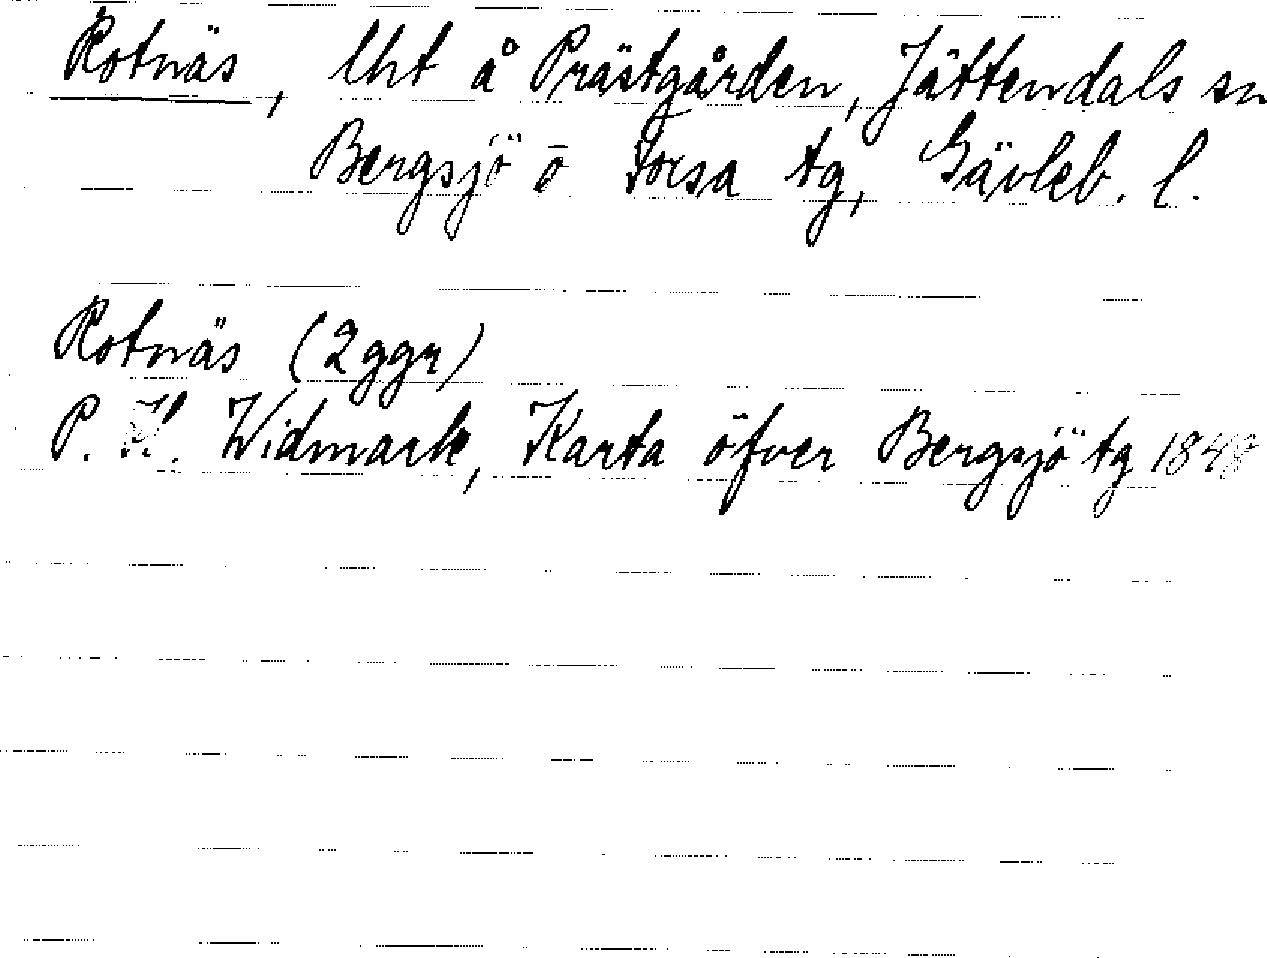 Rotnäs, lht å Prästgården, Jättendals sn
Bergsjö o Forsa tg, Gävleb. l.
Rotnäs (2 ggr)
P. H. Widmark, Karta öfver Bergsjö tg 1848